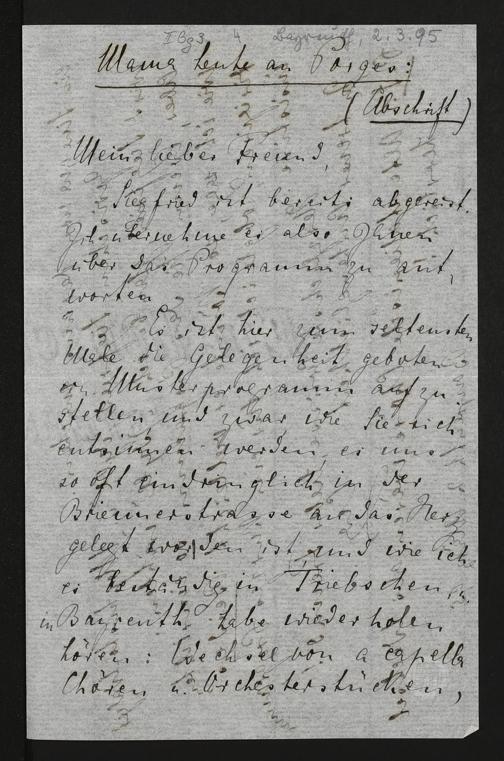 IBg3 4 Bayreuth, 2.3.95
Mama heute an Porges:
(Abschrift)
Mein lieber Freund,
Siegfried ist bereits abgereist.
Ich übernehme es also Ihnen
über das Programm zu ant,
worten
Es ist hier zum seltensten
Male die Gelegenheit geboten
ein Musterprogramm aufzu-
stellen und zwar wie Sie sich
entsinnen werden, es uns
so oft eindringlich in der
Briennerstrasse an das Herz
gelegt worden ist, und wie ich
es beständig in Triebschen u.
in Bayreuth habe wiederholen
hören: Wechsel von a capella
Chören u. Orchesterstücken,